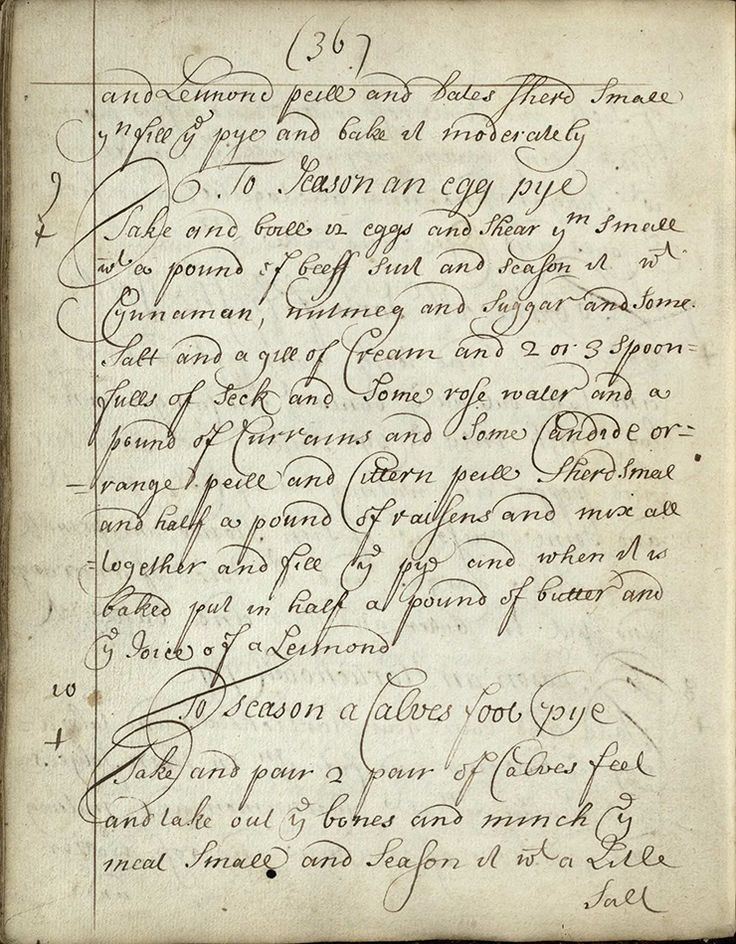 (36)
and Lemmond peill and Dates Sherd Small
yn fill ye pye and bake it moderately
9 To Season an egg pye
+ Take and boill 12 eggs and Shear ym Small
wt a pound of beeff suit and season it wt
Cynnaman, nutmeg and suggar and Some
Salt and a gill of Cream and 2 or 3 spoon-
fulls of Seck and Some rose water and a
pound of Currains and Some Candide or=
=range peill and Cittern peill Sherd Smal
and half a pound of raisens and mix all
=together and fill ye pye and when it is
baked put in half a pound of butter and
ye Joice of a Lemmond
10 To season a Calves foot pye
+ Take and pair 2 pair of Calves feet
and take out ye bones and minch ye
meat Small and Season it wt a Litle
Salt